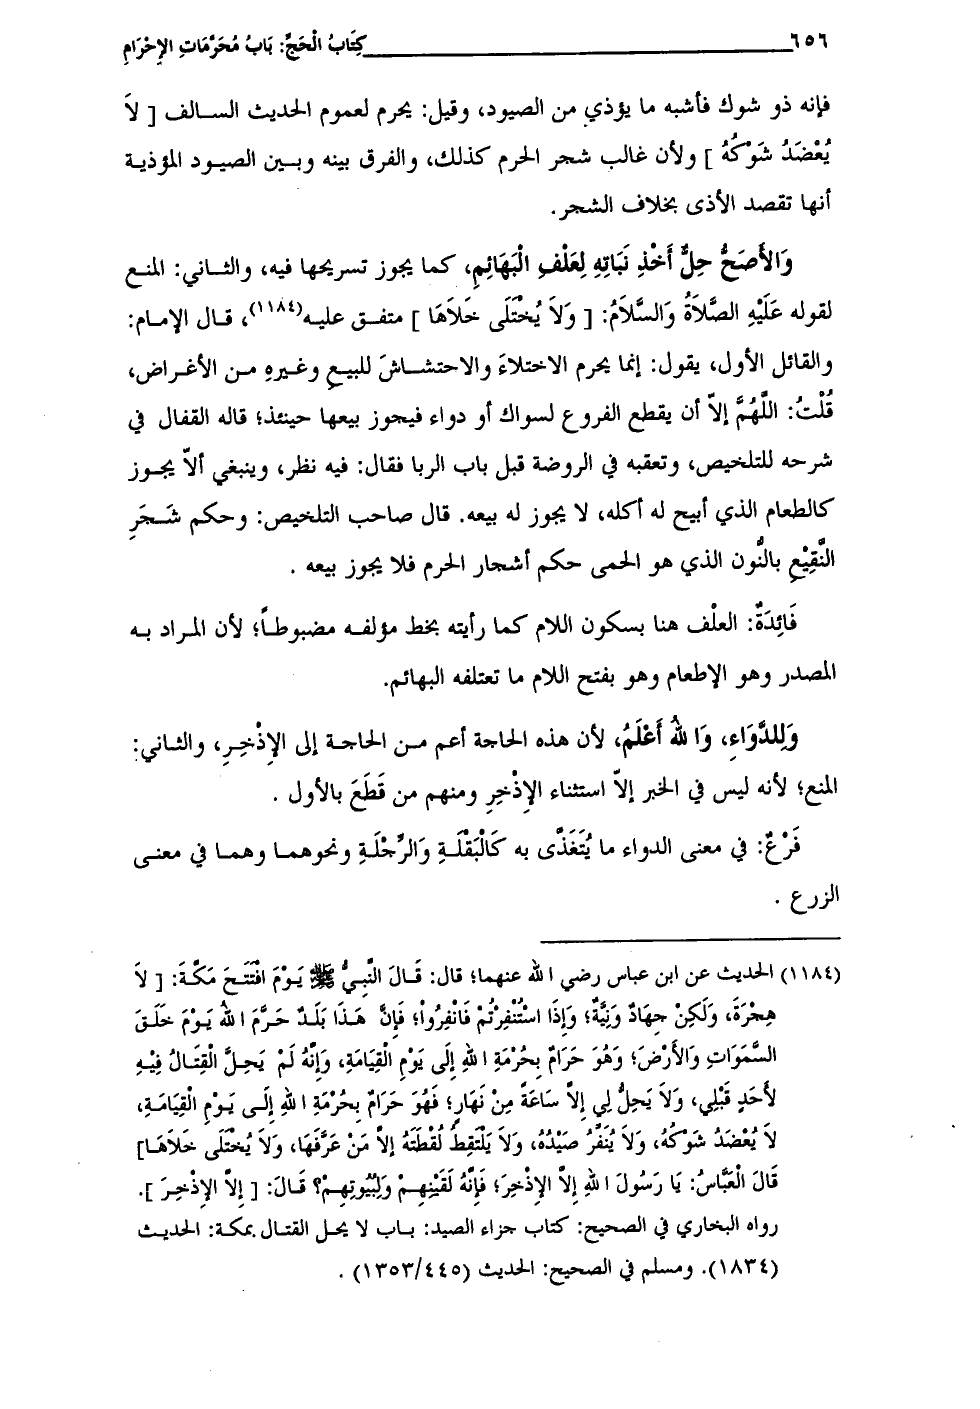 ٦٥٦ كِتَابُ الْحَجِّ: بَابُ مُحَرَّمَاتِ الإِحْرَامِ
فإنه ذو شوك فأشبه ما يؤذي من الصيود، وقيل: يحرم لعموم الحديث السالف [ لاَ
يُعْضَدُ شَوْكُهُ ] ولأن غالب شجر الحرم كذلك، والفرق بينه وبين الصيود المؤذية
أنها تقصد الأذى بخلاف الشجر.
وَالأَصَحُّ حِلُّ أَخْذِ نَبَاتِهِ لِعَلْفِ الْبَهَائِمِ، كما يجوز تسريحها فيه، والثاني: المنع
لقوله عَلَيْهِ الصَّلاَةُ وَالسَّلاَمُ: [ وَلاَ يُخْتَلَى خَلاَهَا ] متفق عليه(١١٨٤)، قال الإمام:
والقائل الأول، يقول: إنما يحرم الاختلاءَ والاحتشاشَ للبيعِ وغيرهِ من الأغراض،
قُلْتُ: اللَّهُمَّ إلاّ أن يقطع الفروع لسواك أو دواء فيجوز بيعها حينئذ؛ قاله القفال في
شرحه للتلخيص، وتعقبه في الروضة قبل باب الربا فقال: فيه نظر، وينبغي ألاّ يجوز
كالطعام الذي أبيح له أكله، لا يجوز له بيعه. قال صاحب التلخيص: وحكم شَجَرِ
النَّقِيْعِ بالنُّون الذي هو الحمى حكم أشجار الحرم فلا يجوز بيعه .
فَائِدَةٌ: العلْف هنا بسكون اللام كما رأيته بخط مؤلفه مضبوطاً؛ لأن المراد به
المصدر وهو الإطعام وهو بفتح اللام ما تعتلفه البهائم.
وَلِلدَّوَاءِ، وَاللهُ أَعْلَمُ، لأن هذه الحاجة أعم من الحاجة إلى الإِذْخِرِ، والثاني:
المنع؛ لأنه ليس في الخبر إلاّ استثناء الإِذْخِرِ ومنهم من قَطَعَ بالأول .
فَرْعٌ: في معنى الدواء ما يُتَغَذَّى به كَالْبَقْلَةِ وَالرِّجْلَةِ ونحوهما وهما في معنى
الزرع .
(١١٨٤) الحديث عن ابن عباس رضي الله عنهما؛ قال: قَالَ النَّبِيُّ ﷺ يَوْمَ افْتَتَحَ مَكَّةَ: [ لاَ
هِجْرَةَ، وَلَكِنْ جِهَادٌ وَنِيَّةٌ؛ وَإِذَا اسْتُنْفِرْتُمْ فَانْفِرُوا؛ فَإِنَّ هَذَا بَلَدٌ حَرَّمَ اللهُ يَوْمَ خَلَقَ
السَّمَوَاتِ وَالأَرْضَ؛ وَهُوَ حَرَامٌ بِحُرْمَةِ اللهِ إِلَى يَوْمِ الْقِيَامَةِ، وَإِنَّهُ لَمْ يَحِلَّ الْقِتَالُ فِيْهِ
لأَحَدٍ قَبْلِي، وَلاَ يَحِلُّ لِي إِلاَّ سَاعَةً مِنْ نَهَارٍ؛ فَهُوَ حَرَامٌ بِحُرْمَةِ اللهِ إِلَى يَوْمِ الْقِيَامَةِ،
لاَ يُعْضَدُ شَوْكُهُ، وَلاَ يُنَفَّرُ صَيْدُهُ، وَلاَ يَلْتَقِطُ لُقْطَتَهُ إِلاَّ مَنْ عَرَّفَهَا، وَلاَ يُخْتَلَى خَلاَهَا]
قَالَ الْعَبَّاسُ: يَا رَسُولَ اللهِ إِلاَّ الإِذْخِرَ؛ فَإِنَّهُ لَقَيْنِهِمْ وَلِبُيُوتِهِمْ؟ قَالَ: [ إِلاَّ الإِذْخِرَ ].
رواه البخاري في الصحيح: كتاب جزاء الصيد: باب لا يحل القتال بمكة: الحديث
(١٨٣٤). ومسلم في الصحيح: الحديث (١٣٥٣/٤٤٥) .